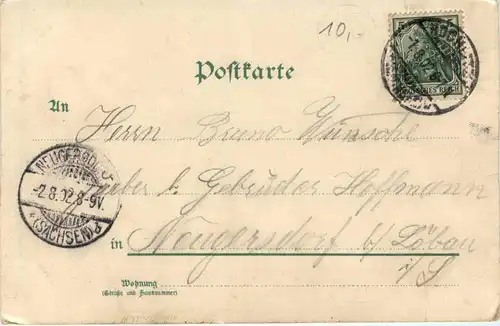 10,-
5
DEUTSCHES REICH
Postkarte
An
Herrn Bruno Wünsche
b. Gebrüder Hoffmann
NEUGERSDORF
-2.8.02.8-9V.
* (SACHSEN) *
in Neugersdorf b/Löbau
i/S
Wohnung
(Straße und Hausnummer)